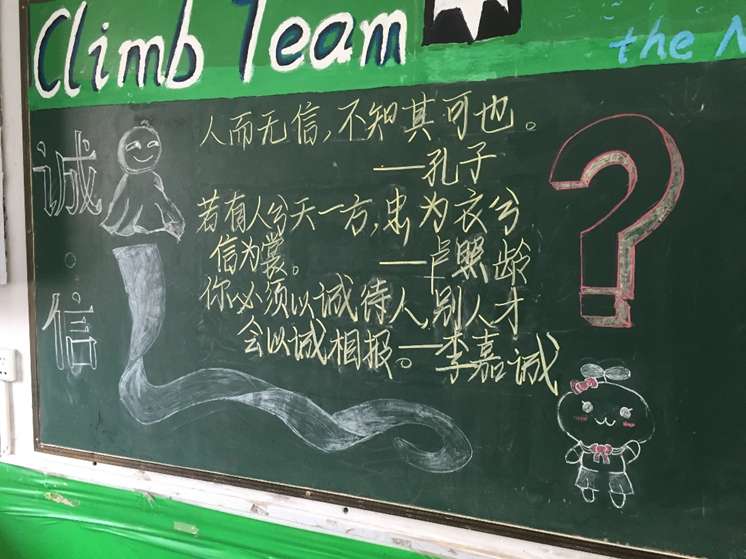 Climb Team
the N
诚·信
人而无信,不知其可也。
——孔子
若有人兮天一方,忠为衣兮
信为裳。 ——卢照龄
你必须以诚待人,别人才
会以诚相报。——李嘉诚
?